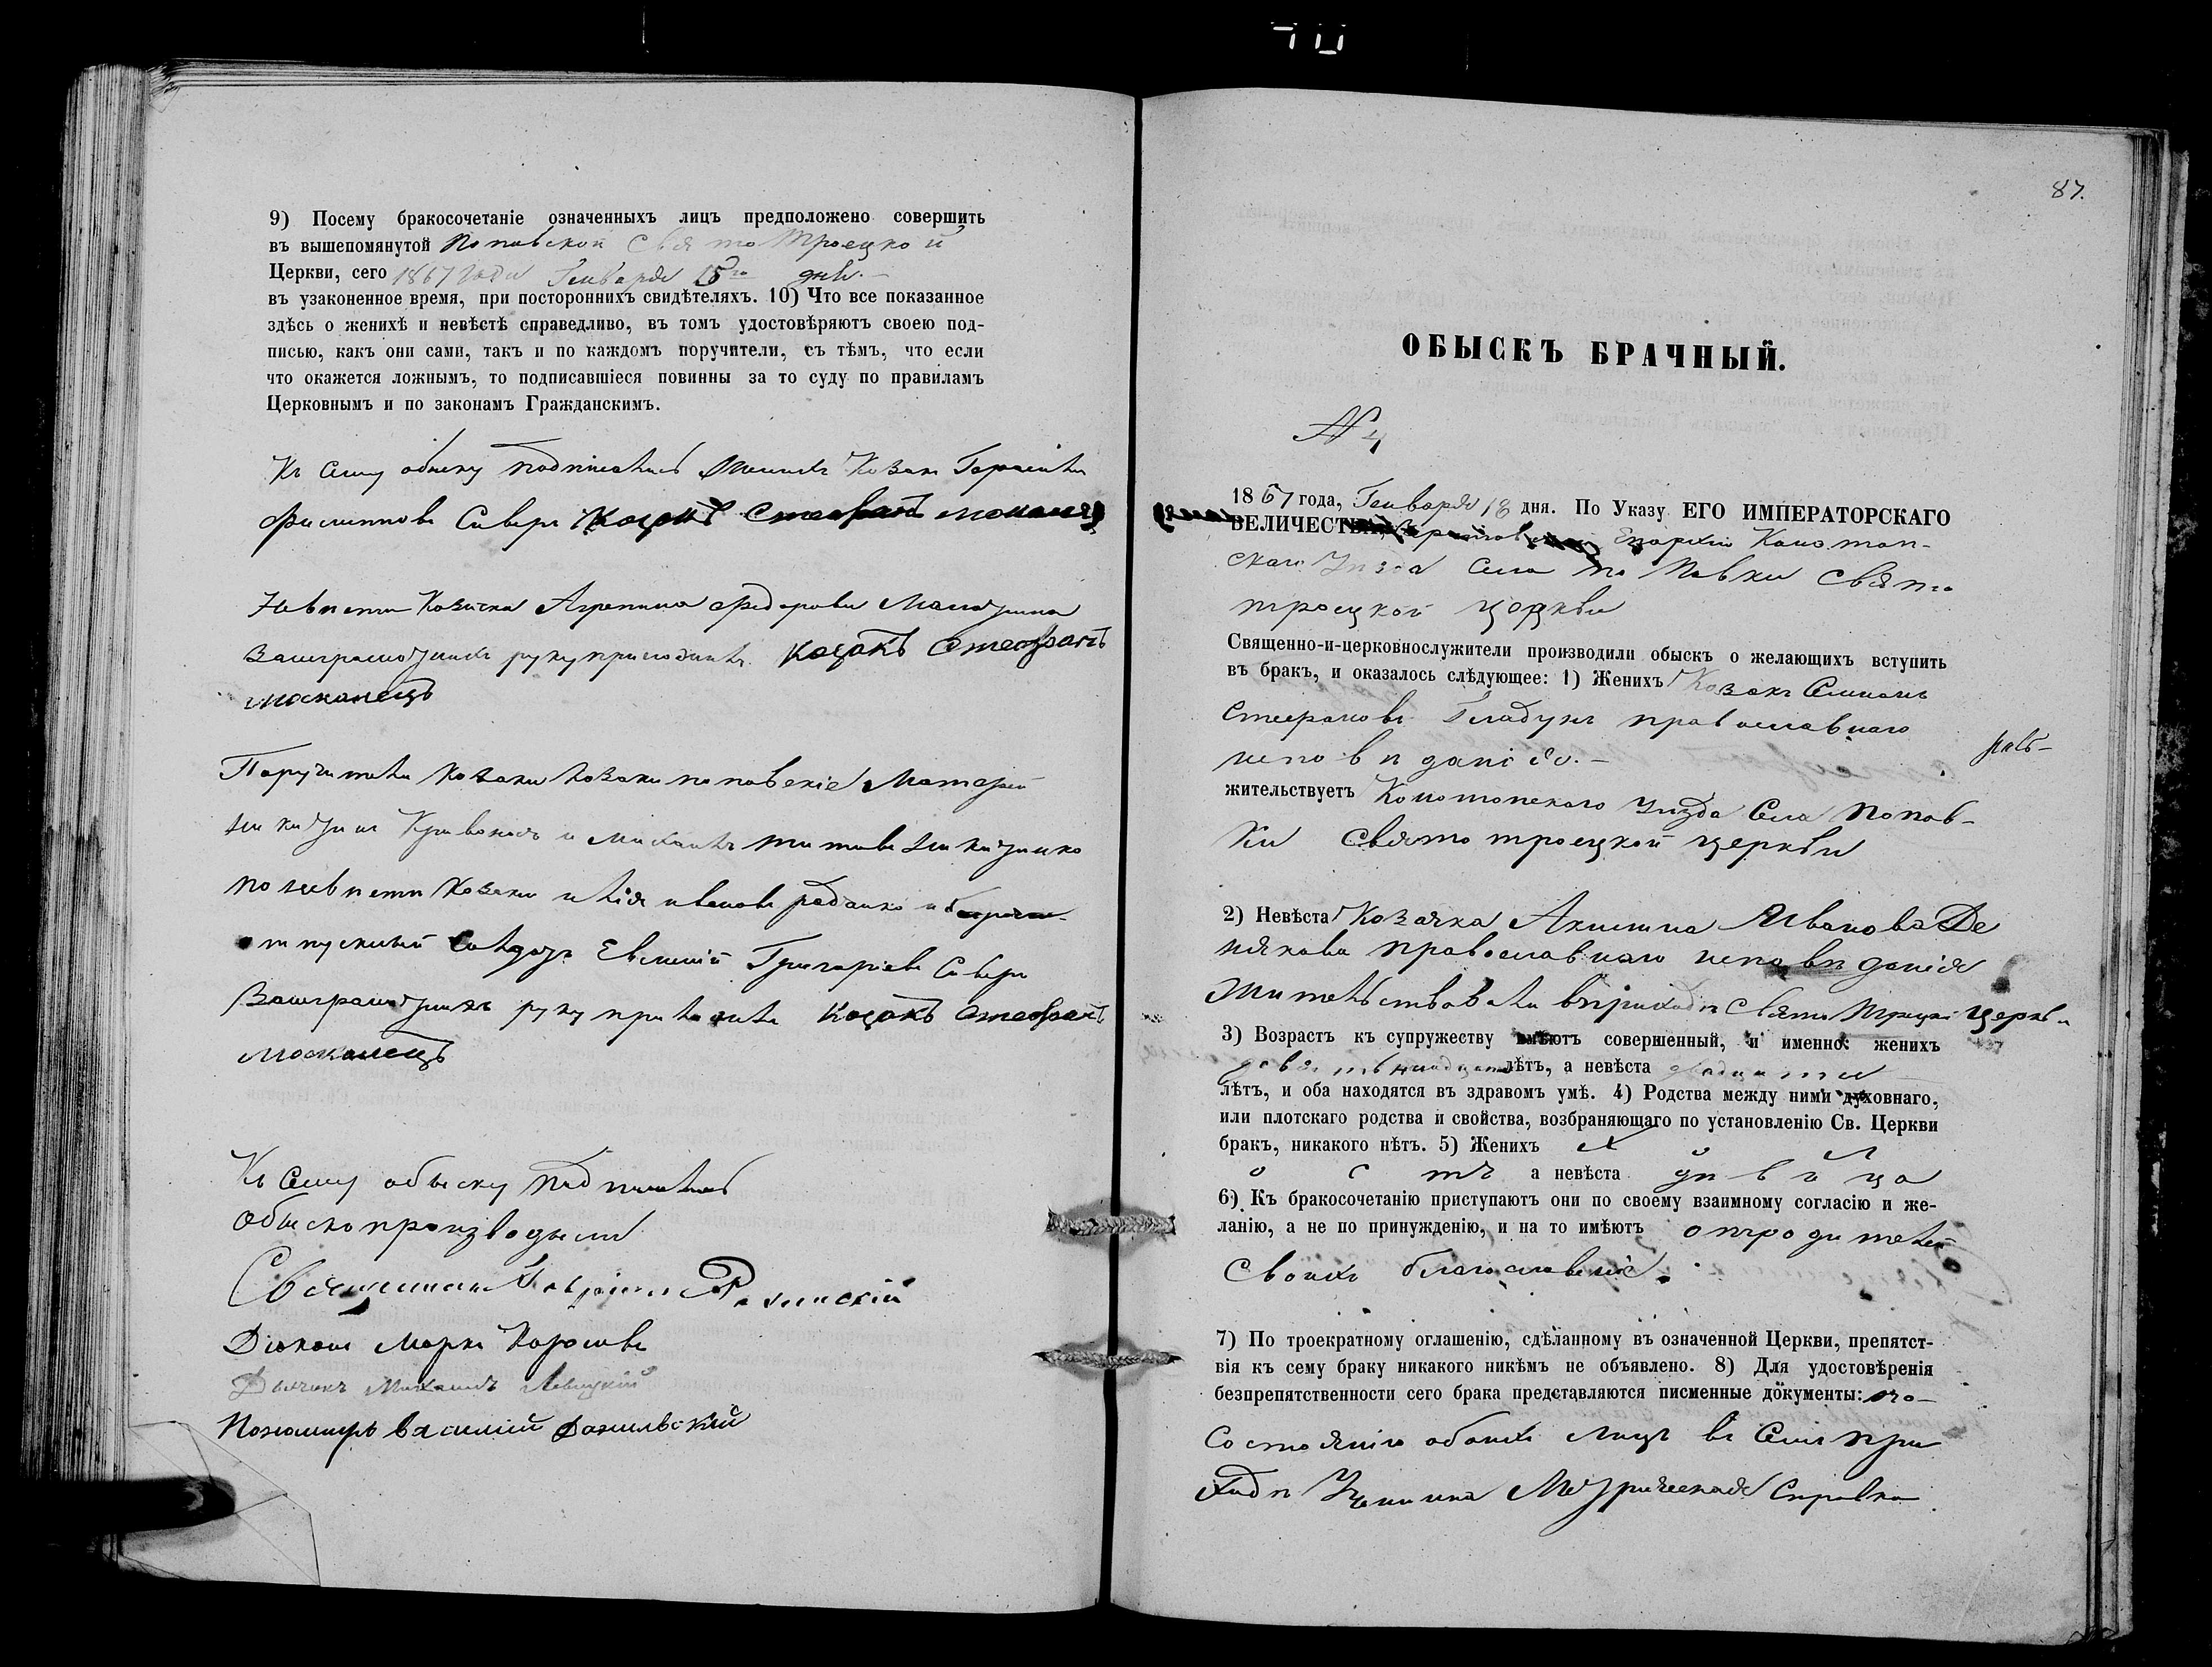 9) Посему бракосочетаніе означенныхъ лицъ предположено совершить
въ вышепомянутой Поповской Свято Троецкой
Церкви, сего 1867 года Генваря 18го дня.
въ узаконенное время, при постороннихъ свидѣтеляхъ. 10) Что все показанное
здѣсь о женихѣ и невѣстѣ справедливо, въ томъ удостовѣряютъ своею под-
писью, какъ они сами, такъ и по каждомъ поручители, съ тѣмъ, что если
что окажется ложнымъ, то подписавшіеся повинны за то суду по правиламъ
Церковнымъ и по законамъ Гражданскимъ.
Къ сему обыску подписались Женихъ Козакъ Герасимъ
Филиппове Северъ Коzакъ Стефанъ
Невѣста Козачка Агрепина Федорова
руку приложилъ Коzакъ Стефанъ
Москалецъ
Поручители Козаки поповскіе Матфей
Кривоносъ и Михаилъ Титовъ
по невѣсте Козаки Илія Ивановъ Раданко
отпускный Солдатъ Евсипій Григоріевъ Северъ
руку приложилъ Коzакъ Стефанъ
Москалецъ
Къ сему обыску подписались
Обыскъ производили
Священникъ Рахинскій
Діаконъ Марко
Дьячокъ Михаилъ Левицкій
Пономарь Василій
87.
ОБЫСКЪ БРАЧНЫЙ.
№ 4
1867 года, Генваря 18 дня. По Указу ЕГО ИМПЕРАТОРСКАГО
ВЕЛИЧЕСТВА, Черниговской Епархіи Конотоп-
скаго Уѣзда Села Поповки Свято
троецкой церкви
Священно-и-церковнослужители производили обыскъ о желающихъ вступить
въ бракъ, и оказалось слѣдующее: 1) Женихъ Козакъ Симионъ
Стефановъ Гладунъ православнаго
исповѣданія.
жительствуетъ Конотопскаго уѣзда Села Попов-
ки Свято троецкой церкви
2) Невѣста Козачка Акилина Иванова Де
някова православнаго исповѣданія
Жительствовала въ приходѣ Свято Троцкой церкви
3) Возрастъ къ супружеству имѣютъ совершенный, и именно: женихъ
девятьнадцать лѣтъ, а невѣста двадцати
лѣтъ, и оба находятся въ здравомъ умѣ. 4) Родства между ними духовнаго,
или плотскаго родства и свойства, возбраняющаго по установленію Св. Церкви
бракъ, никакого нѣтъ. 5) Женихъ хол
остъ а невѣста дѣвица
6) Къ бракосочетанію приступаютъ они по своему взаимному согласію и же-
ланію, а не по принужденію, и на то имѣютъ отродителей
своихъ благословеніе.
7) По троекратному оглашенію, сдѣланному въ означенной Церкви, препятст-
вія къ сему браку никакого никѣмъ не объявлено. 8) Для удостовѣренія
безпрепятственности сего брака представляются писменные документы: по-
состоянію обоихъ лицъ въ семъ при
ходѣ Учинина Метрическая Справка